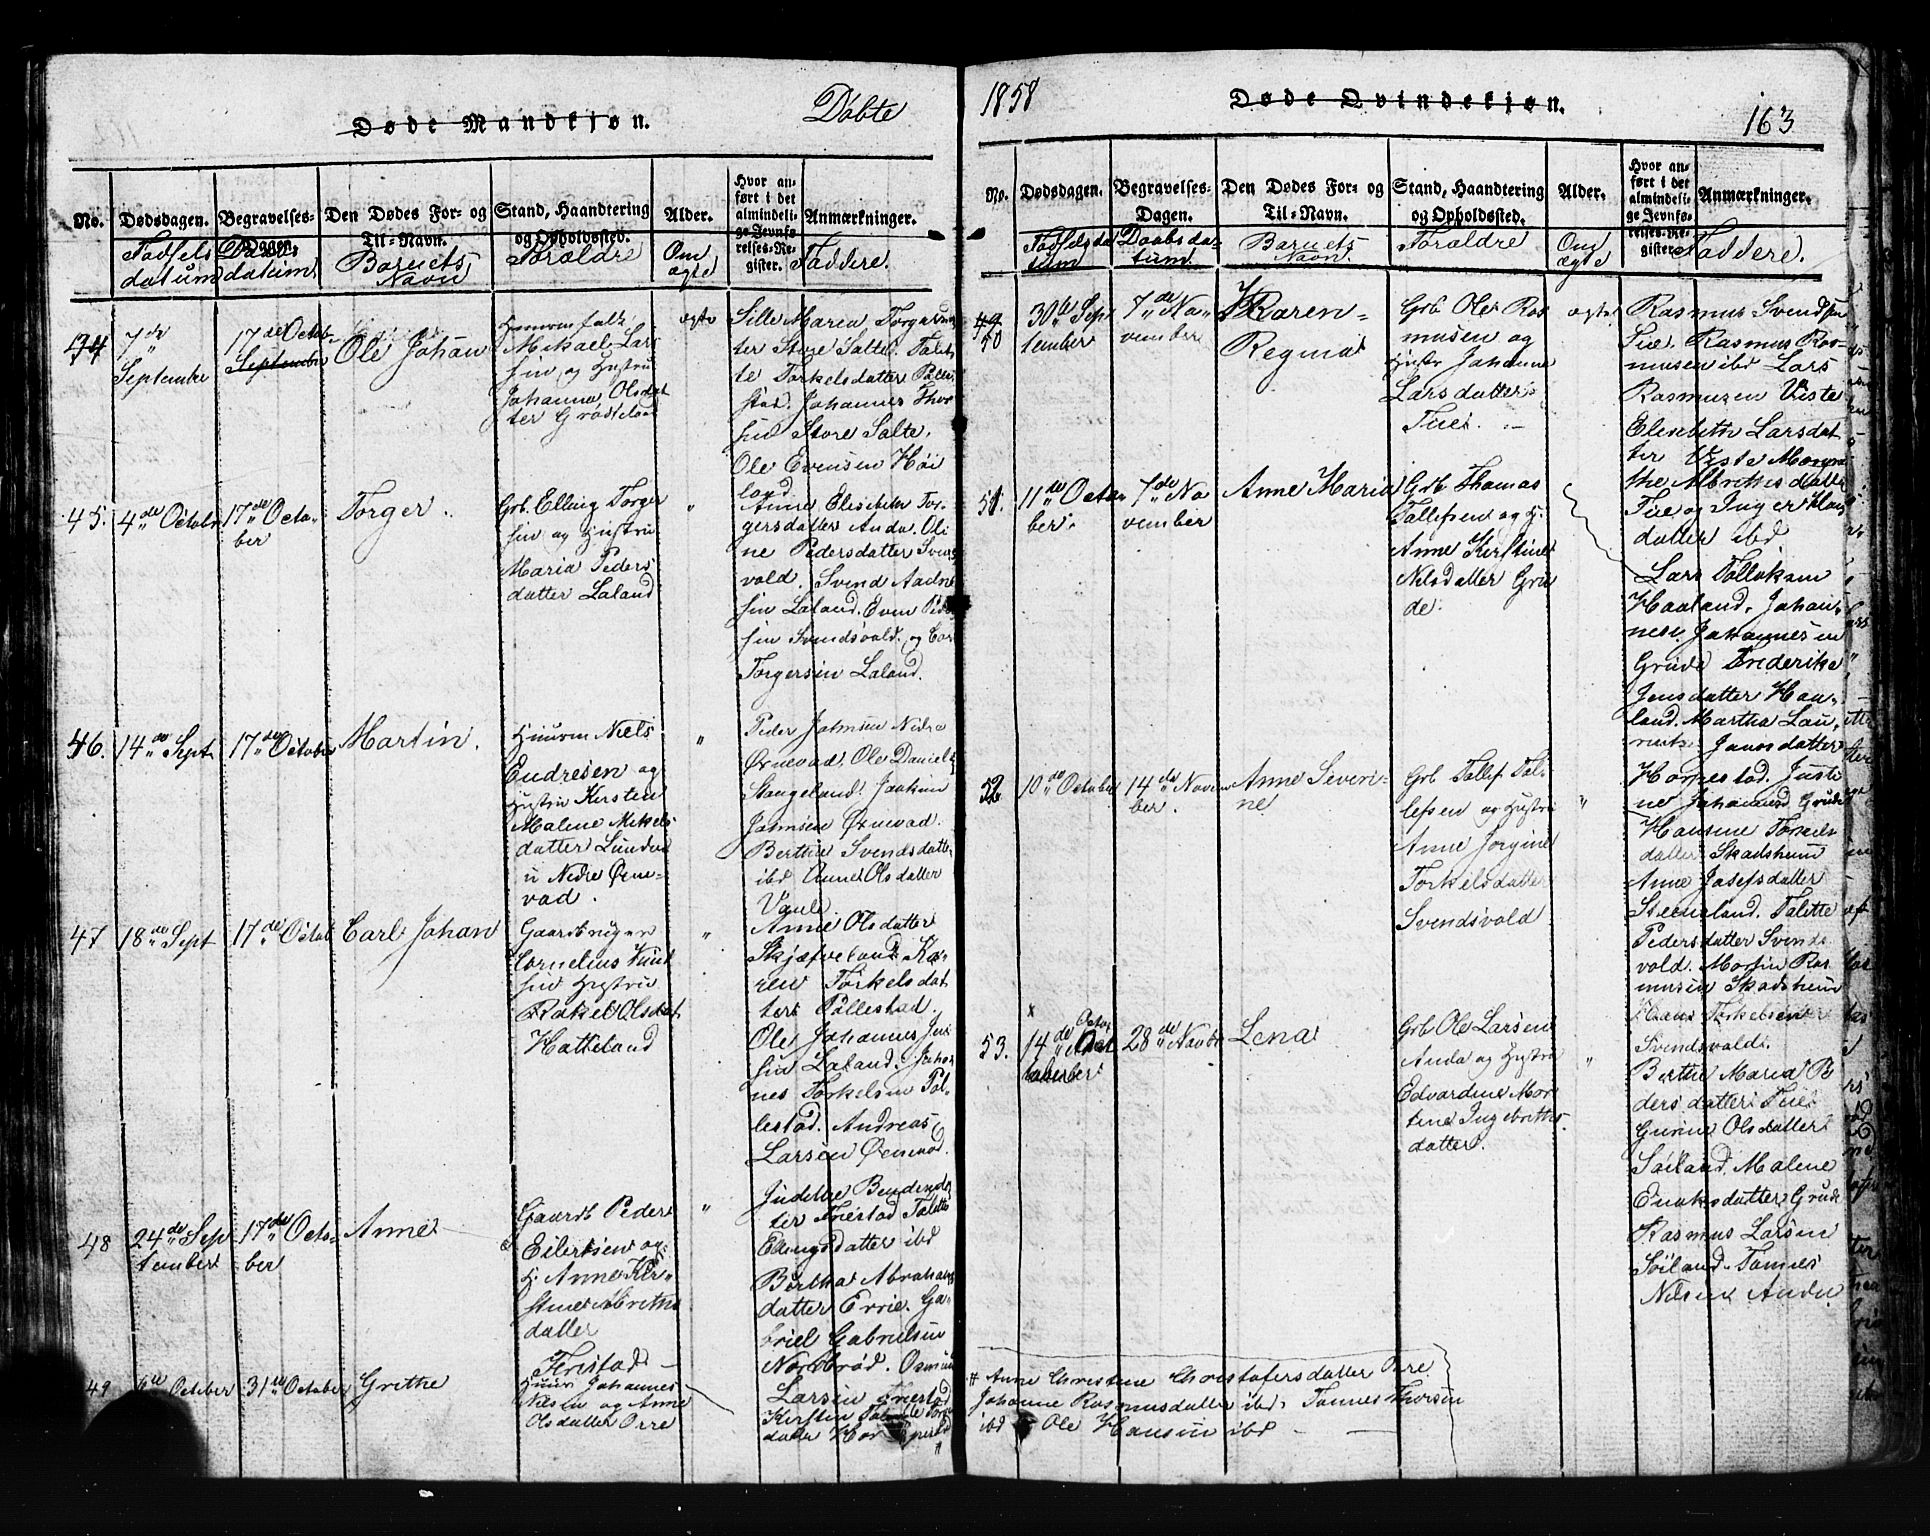 Døde Mandkjøn.
Døbte
No.
Dødsdagen.
Begravelses-
Dagen.
Den Dødes For- og
Til-Navn.
Stand, Haandtering
og Opholdssted.
Alder.
Hvor an-
ført i det
almindeli-
ge Jevnfø-
relses-Re-
gister.
Anmærkninger.
Fødsels
datum
Daabs
datum
Barnets
Navn
Forældre
Om
ægte
Faddere.
7de
September
17de Octob.
September
Ole Johan
Mikael Lar
sen og Hustru
Johanna Olsdat
ter
ægte
Sille Maria Torgersdat
ter Store Salte. Talet
te Torkelsdatter Pølle
stad. Johannes Thor
sen Store Salte.
Ole Evensen Høi
land.
45.
4de Octobr
17de Octo-
ber
Torger.
Grb. Elling Torger
sen og Hustru
Maria Peders
datter Laland
"
Anne Elisebeth Tor-
gersdatter Anda. Oli
ne Pedersdatter Svens
vold. Svend Aadne
sen Laland. Even Peder
sen Svendsvold. og
Torgersen Laland.
46.
14de Sept
17de October
Martin.
Huusm Niels
Endresen og
Hustru Kirsten
Malene Mikels
datter Lunden
u Nedre Ørne-
vad.
"
Peder Jahnsen Nedre
Ørnevad. Ole Daniels
Stangeland. Joakim
Jahnsen Ørnevad.
Berthe Svendsdatter
ibd Anne Olsdatter
47
18de Sept
17de Octob
Carl Johan
Gaardbruger
Cornelius Knud
sen Hustru
Rakel Olsdat
Hatteland
"
Anne Olsdatter
Skjæfveland. Ka-
ren Torkelsdat
ter Pollestad.
Ole Johannes Jen
sen Laland. Johan
nes Torkelsen Pol-
lestad. Andreas
Larsen Ørnevad.
48
24de Sep
tember
17de Octo-
ber
Anne
Gaardb Peder
Eilertsen og
H. Anne Kir-
stine Albrethe
datter
Friestad
"
ter Friestad Talette
Ellingsdatter ibd
Bertha Abrahams
datter Erviе. Ga-
briel Gabrielsen
Nordbrød. Osmund
Larsen Friestad
49
October
31te October
Grethe
Huusm Johannes
Nilsen og Anne
Olsdatter Orre
Kirsten
datter
#
1858
Døde Qvindekjøn.
163
No.
Dødsdagen.
Begravelses-
Dagen.
Den Dødes For- og
Til-Navn.
Stand, Haandtering
og Opholdssted.
Alder.
Hvor an-
ført i det
almindeli-
ge Jevnfø-
relses-Re-
gister.
Anmærkninger.
Fødselsda
tum
Daabsda-
tum.
Barnets
Navn.
Forældre
Om
ægte
Faddere.
49
50
30te Sep
tember
7de No-
vember
Karen
Regina
Grb Ole Ras
musen og
Hustr Johanne
Larsdatter
Tue.
ægte
Rasmus Svendsen
Tue. Rasmus Ras-
musen ibd Lars
Rasmusen Viste
Elisebeth Larsdat
ter Viste Margre
the Albretsdatter
Tue og Inger Klaus
datter ibd
51.
11de Octo
ber.
7de No
vember
Anne Maria
Grb Thomas
Tollefsen og H.
Anne Kirstine
Nilsdatter Gru
de.
Lars Tollaksen
Haaland. Johan-
nes Johannesen
Grude Frederike
Jensdatter Haa-
land. Martha Lau-
Jansdatter
Horpestad. Justi
ne Johannesd Grude
52
10de October
14de Novem
ber.
Anne Severi-
ne
Grb Tollef Tol-
lefsen og Hustru
Anne Jorgine
Torkelsdatter
Svendsvold
"
Hansine Torkels
datter Skadsheim
Anne Josefsdatter
Steenland. Talette
Pedersdatter Svends
vold. Martin Ras
musen Skadsheim
Hans Torkelsen
Svendsvold.
53.
x
14de Octo
ber
28de Novbr
Lena
Grb Ole Larsen
Anda og Hustru
Edvardine Mor
tine Ingebreths-
datter.
"
Berthe Maria Pe
dersdatter Tue
Gurine Olsdatter
Søiland. Malene
Enoksdatter Grude
Rasmus Larsen
Søiland. Tønnes
Nilsen Anda.
# Anne Christine Christofersdatter Orre
Johanne Rasmusdatter ibd. Tønnes Thorsen
ibd Ole Hansen ibd